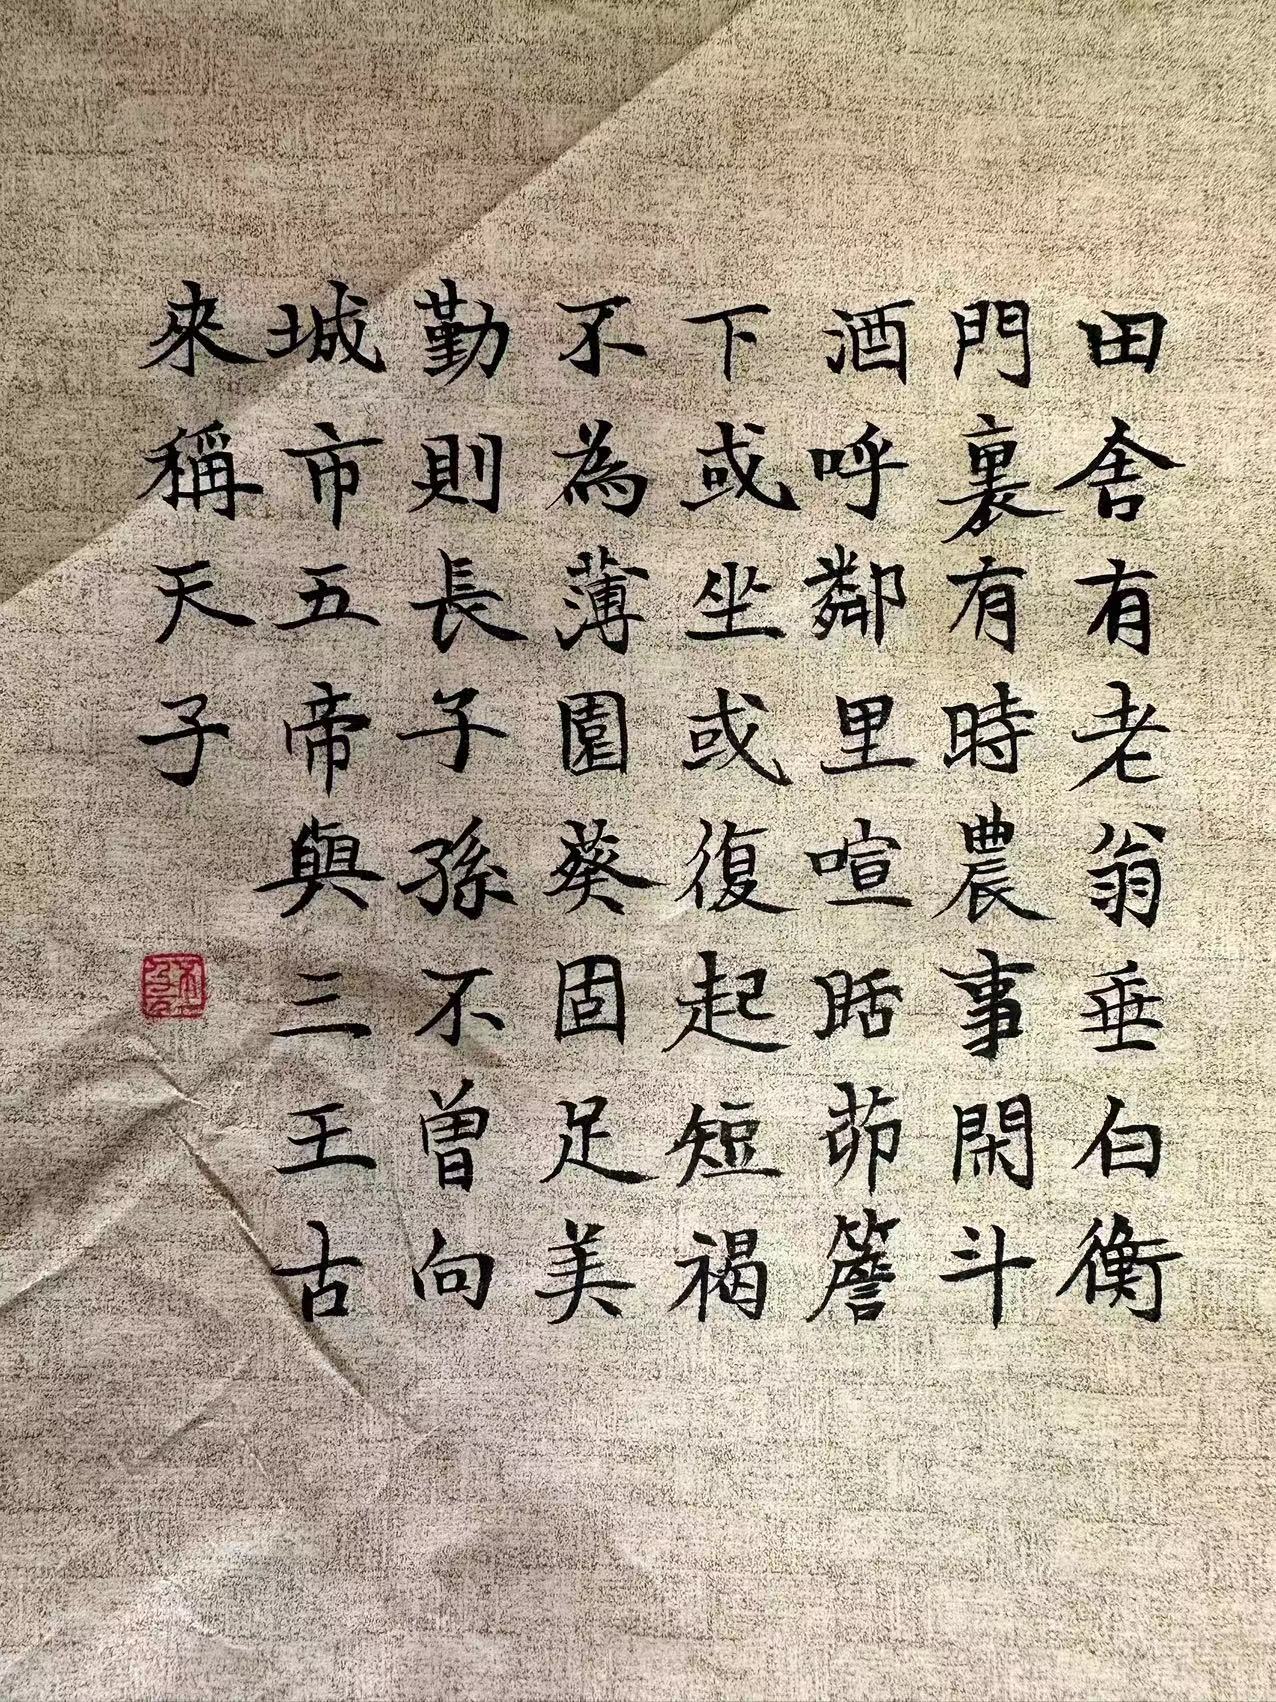 田舎有老翁垂白衡
門裏有時農事閑斗
酒呼鄰里喧聒茆簷
下或坐或復起短褐
不為薄園葵固足美
勤則長子孫不曾向
城市五帝與三王古
來稱天子